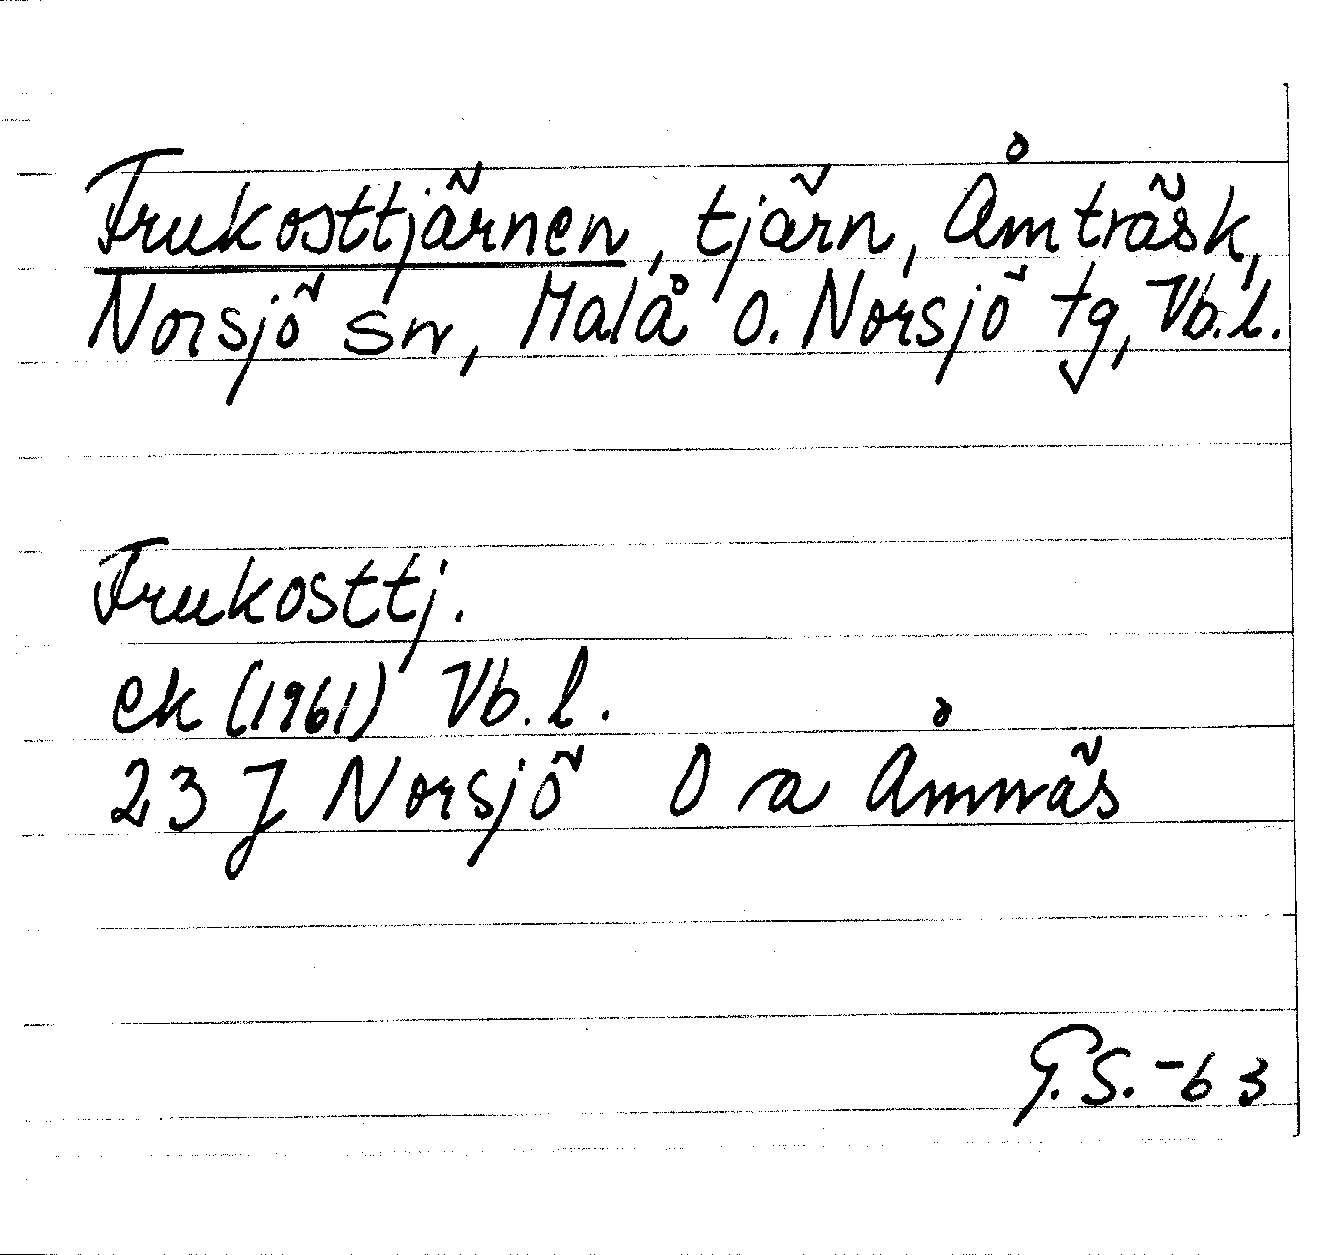 Frukosttjärnen, tjärn, Åmträsk,
Norsjö sn, Malå o. Norsjö tg, Vb.l.
Frukosttj.
ek (1961) Vb.l.
23 J Norsjö O a Åmnäs
G.S.-63